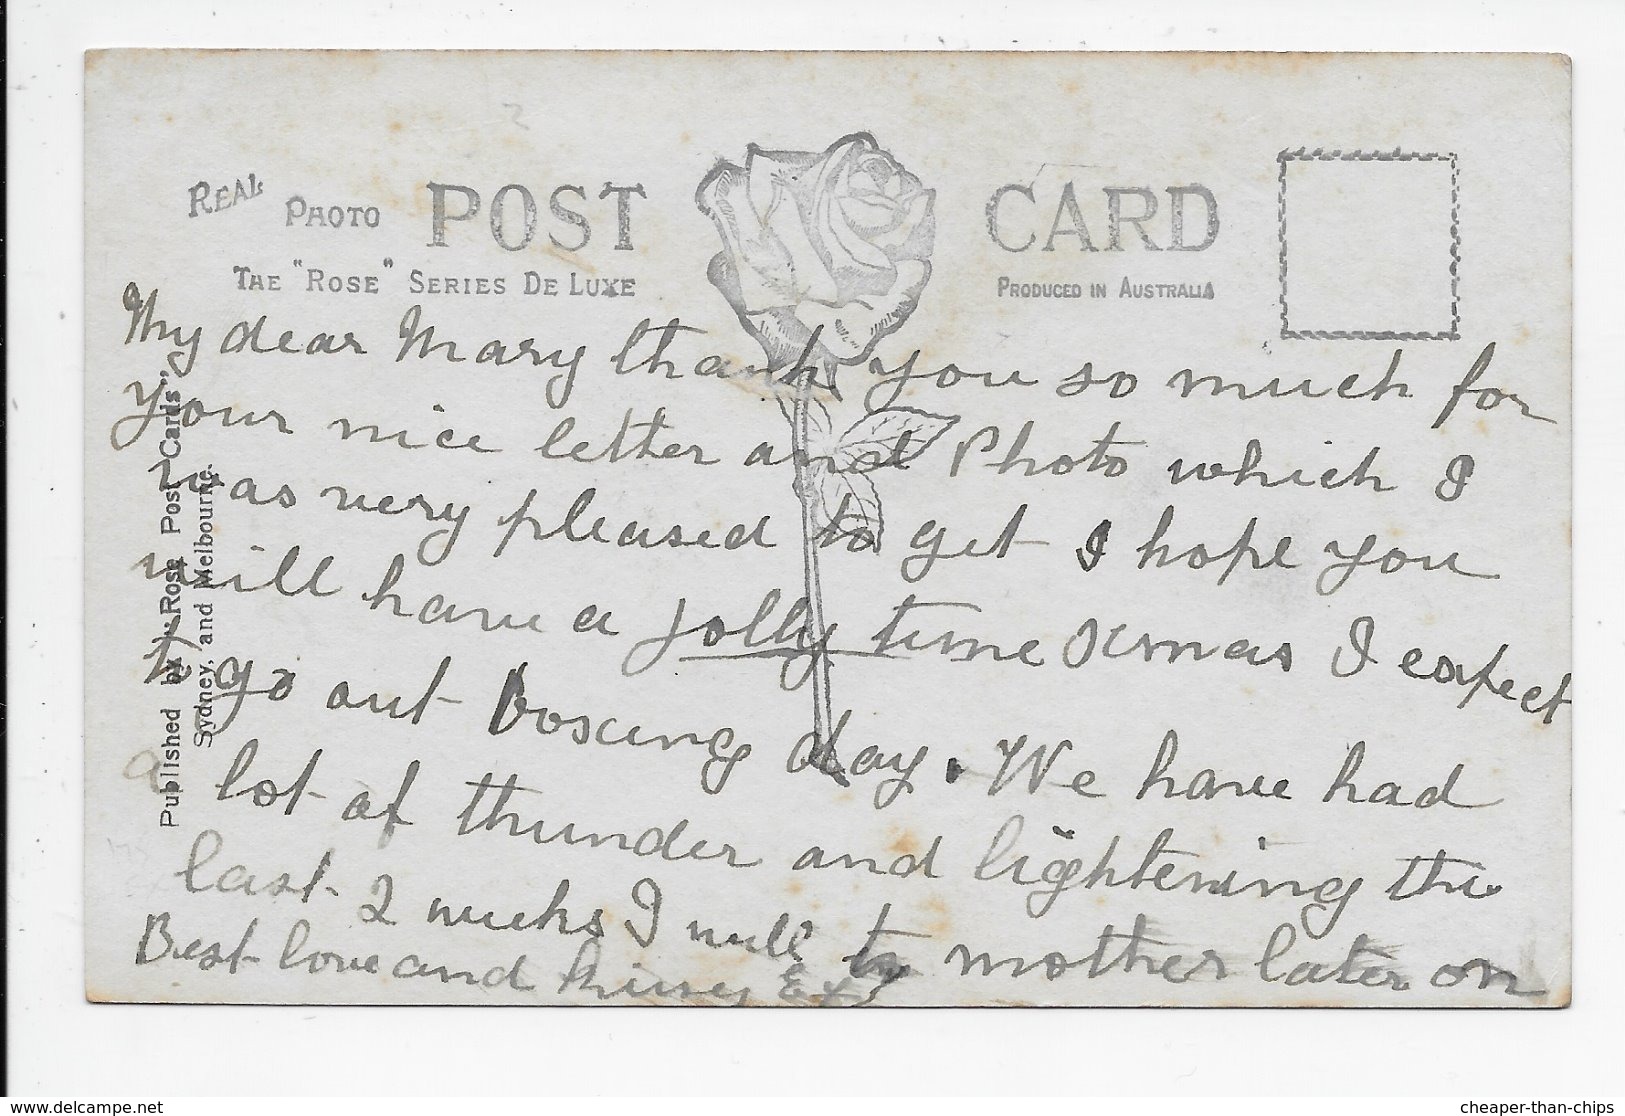 REAL PHOTO POST CARD
THE "ROSE" SERIES DE LUXE
PRODUCED IN AUSTRALIA
Published by "Rose Post Cards",
Sydney, and Melbourne.
My dear Mary thank you so much for
your nice letter and Photo which I
was very pleased to get I hope you
will have a jolly time Xmas I expect
to go out boxing day. We have had
a lot of thunder and lightening the
last 2 weeks I will to mother later on
Best love and
© www.delcampe.net
cheaper-than-chips